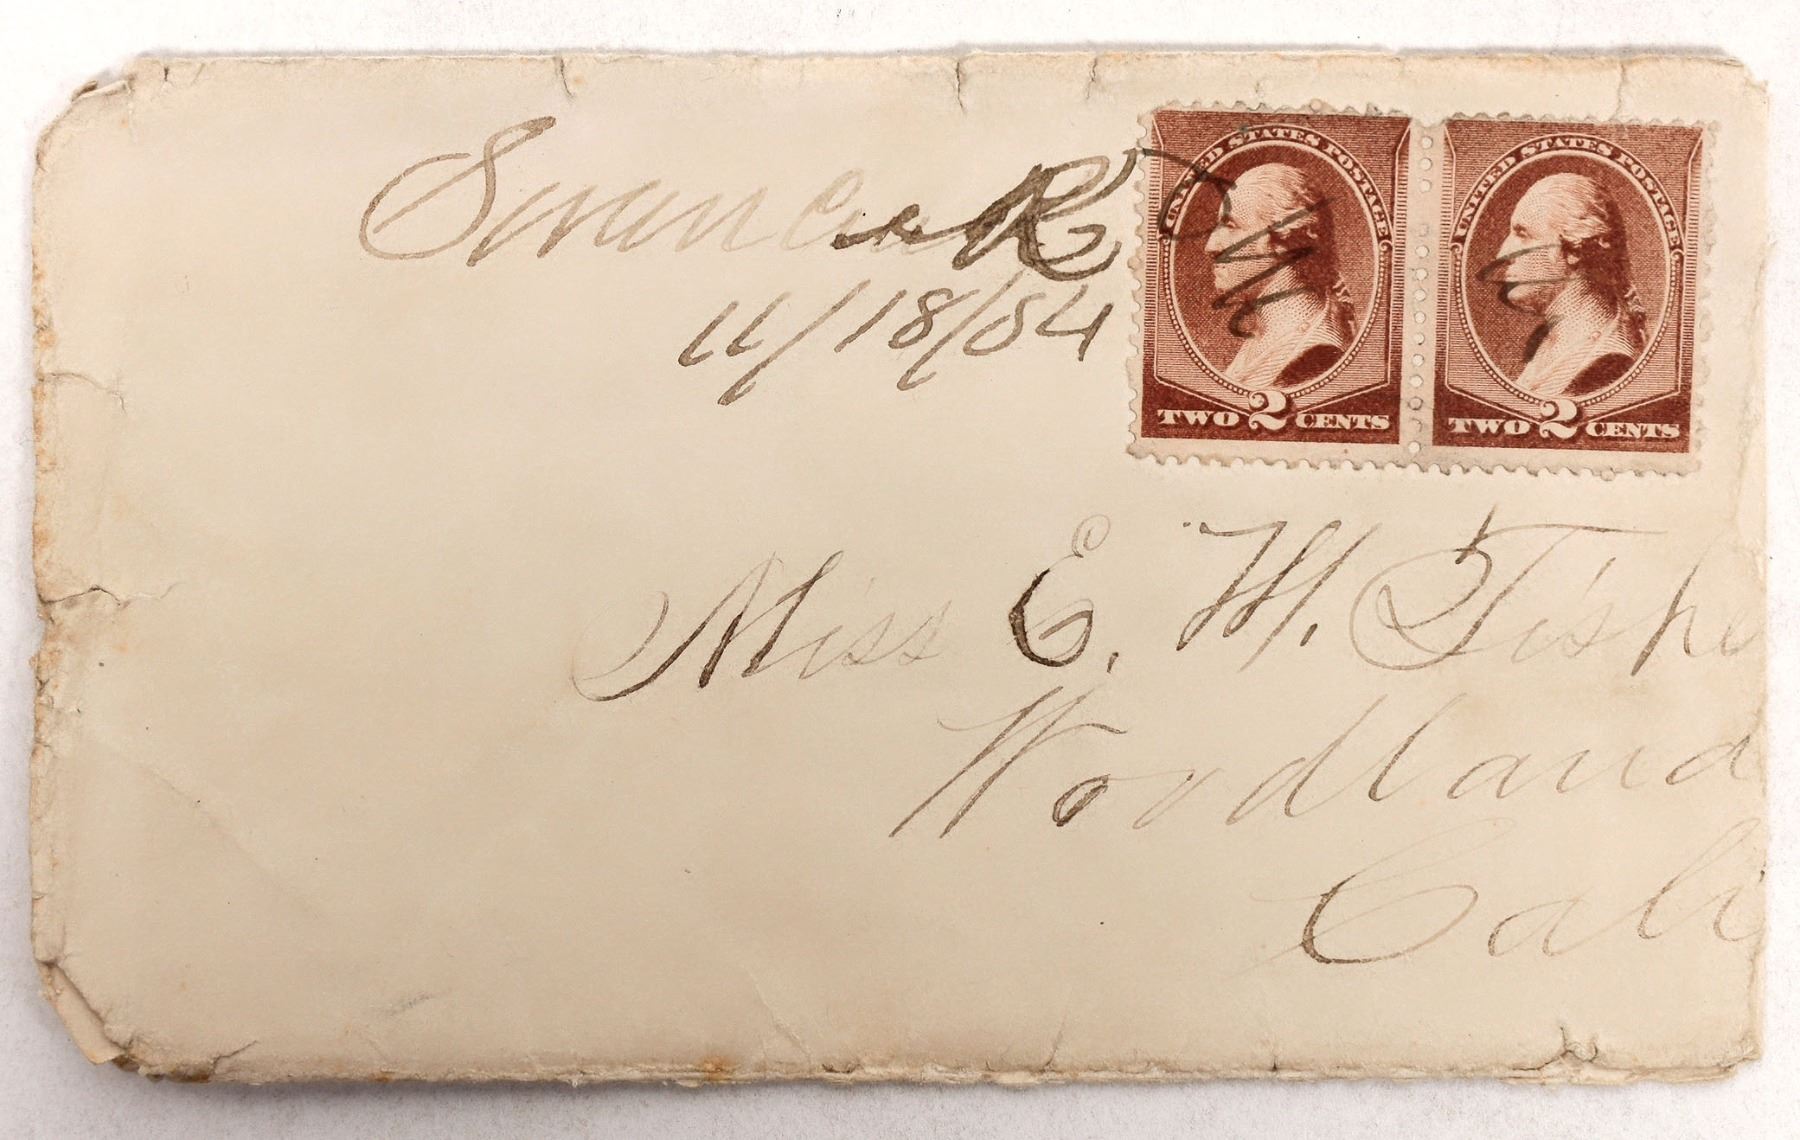 11/18/84
UNITED STATES POSTAGE
TWO 2 CENTS
UNITED STATES POSTAGE
TWO 2 CENTS
Miss E. W. Fishe
Woodland
Cali